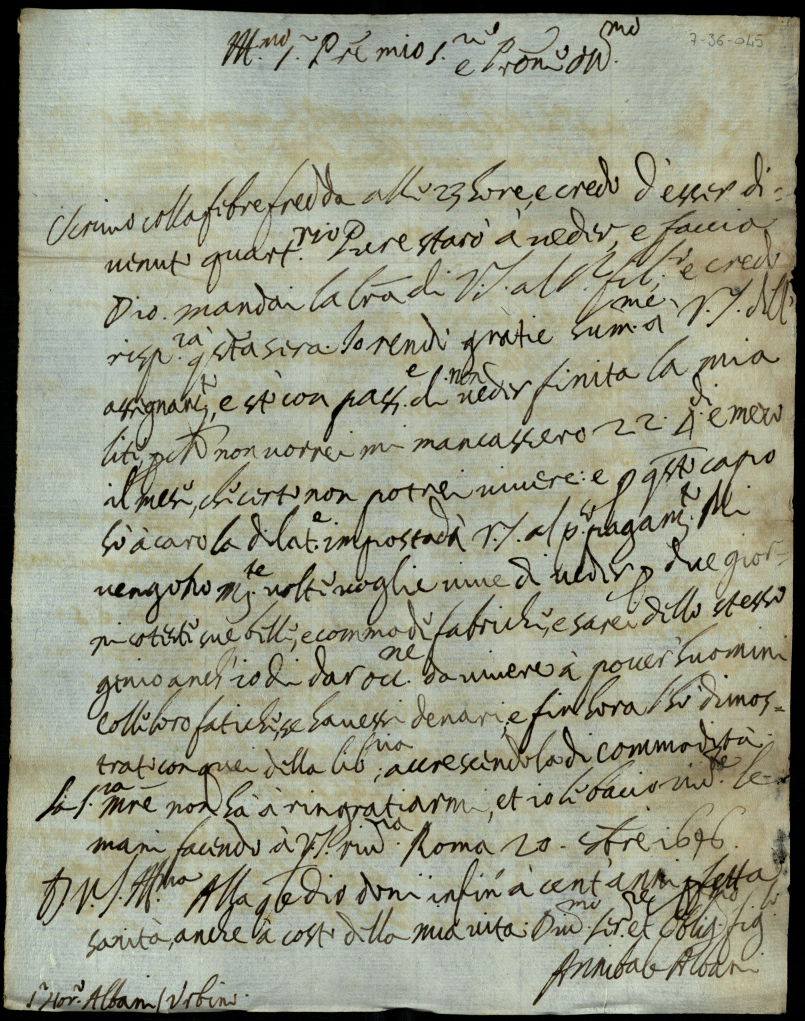 7-36-045
Ill.mo S.r Prẽ mio S.re
e Prõne Oss.mo
Scrivo colla febre fredda alle 23 hore, e credo d'esser di=
venuto quart.rio Pure starò à veder, e faccia
Dio. mandai la lr̃a di V.S. al e credo
risp.rà q̃sta sera. Io rendo gratie som.me à V.S. dell'
assignam.to, e stò con pass.e di non veder finita la mia
lite, p̃che non vorrei mi mancassero 22. e mezo
il mese, che certo non potrei vivere: e p q̃sto capo
hò à caro la dilat.e impostada V.S. al p.o pagam.to Mi
vengono m.te volte voglie vive di veder p due gior=
ni coteste sue belle, e commode fabriche, e sarei dello stesso
genio anch'io di dar occ.ne da vivere à pover'huomini
colle loro fatiche, se havessi denari, e fin hora l'hò dimos=
trato con quei della lib.ria, accrescendola di commodità.
La S.ra Mrẽ non hà à ringratiarmi, et io le bacio riv.te le
mani facendo à V.S. riv.za Roma 20. 8bre 1696.
D V.S. Ill.ma Alla q̃ Dio doni infin' à cent'anni p̃fetta
sanità, anche à costo della mia vita. Div.mo Ser.re et Oblig. fig.lo
Annibale Albani
S.r Hor.o Albani / Urbino.